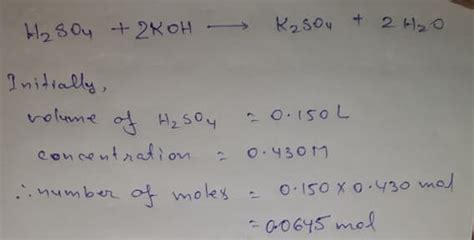 H₂SO₄ + 2KOH ⟶ K₂SO₄ + 2H₂O
Initially,
volume of H₂SO₄ = 0.150L
concentration = 0.430M
∴number of moles = 0.150 × 0.430 mol
= 0.0645 mol